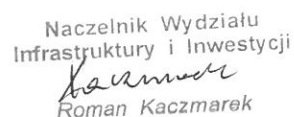 Naczelnik Wydziału
Infrastruktury i Inwestycji
Kaczmarek
Roman Kaczmarek